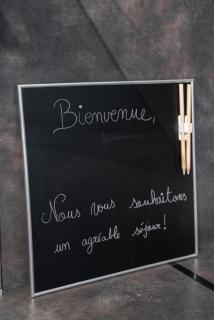 Bienvenue,
Nous vous souhaitons
un agréable séjour!